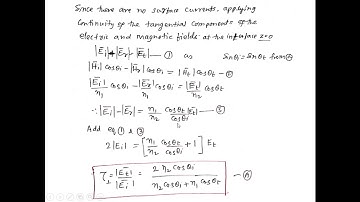 Since there are no surface currents, applying
continuity of the tangential components of the
electric and magnetic fields at the interface z=0
|Ēi|+|Ēr|=|Ēt| — ① as Sinθi=Sinθr from
|H̄i| cosθi − |H̄r| cosθi = |H̄t| cosθt — ②
|Ēi|/η1 cosθi − |Ēr|/η1 cosθi = |Ēt|/η2 cosθt
∴ |Ēi|−|Ēr| = η1/η2 cosθt/cosθi |Ēt| — ③
Add eq ① & ③
2|Ei| = [η1/η2 cosθt/cosθi + 1] Et
τ⊥ = |Ēt|/|Ēi| = 2 η2 cosθi / η2 cosθi + η1 cosθt — Ⓐ